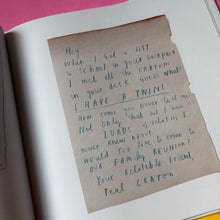 Hey,
When I got a LIFT
to school in your backpack
I met all the CRAYONS
in your desk. Guess what?
I HAVE A TWIN!
How come you never told me?
Not only that but I have
LOADS of relatives I
never knew about.
Would you like to come to
OUR FAMILY REUNION?
Your Relatable Friend,
Teal CRAYON